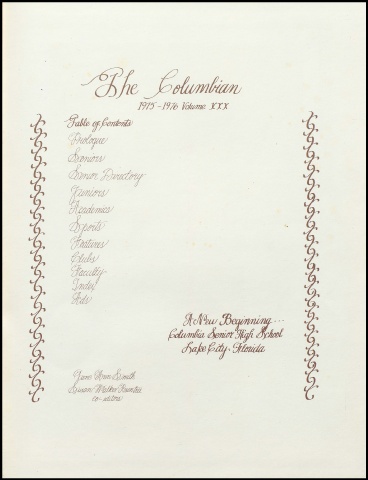 The Columbian
1975-1976 Volume XXX
Table of Contents
Prologue
Seniors
Senior Directory
Juniors
Academics
Sports
Features
Clubs
Faculty
Index
Ads
A New Beginning...
Columbia Senior High School
Lake City, Florida
Ann Smith
Susan
co-editors